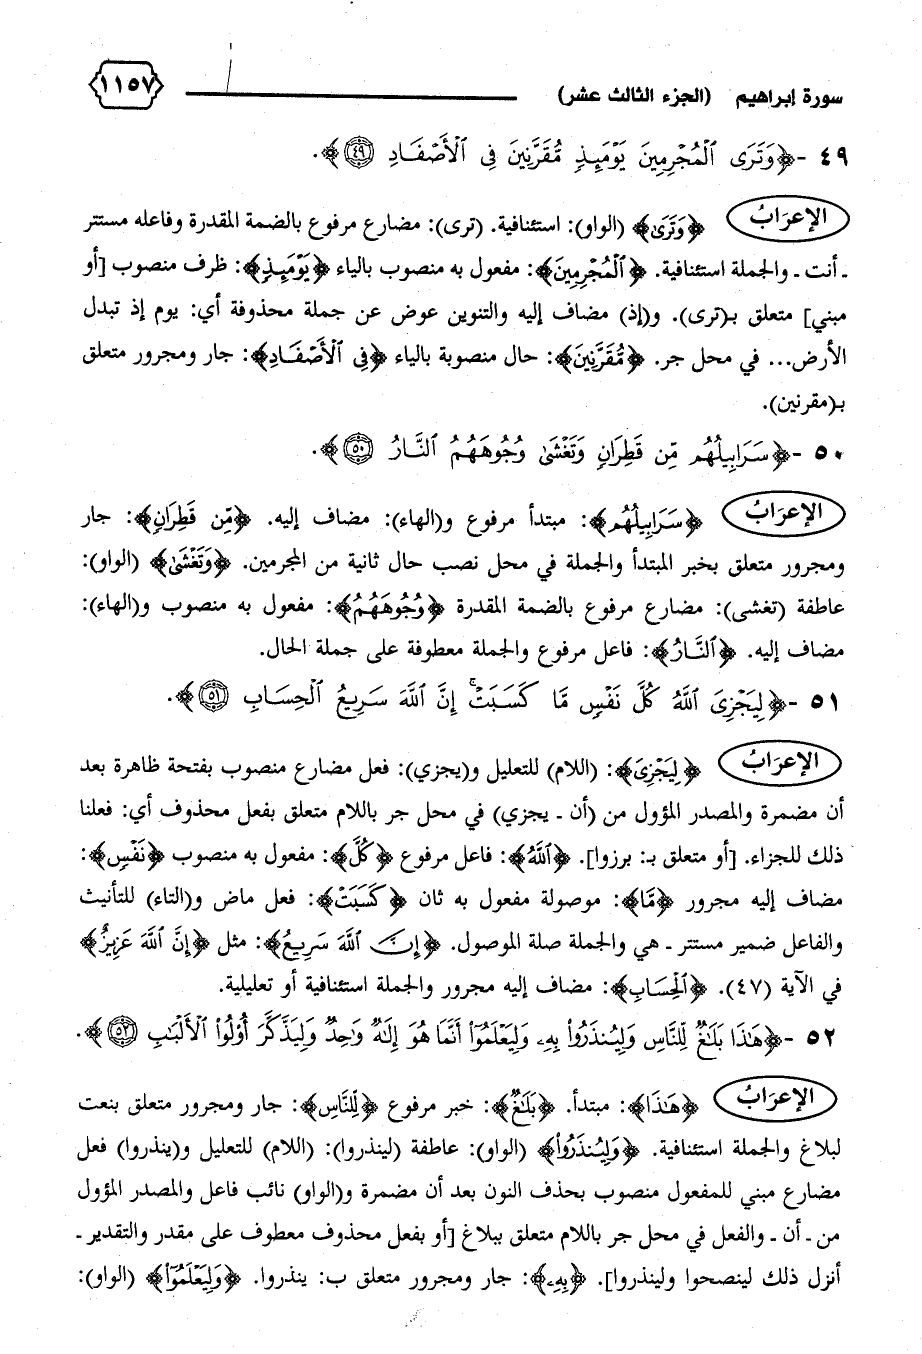 سورة إبراهيم (الجزء الثالث عشر) ١١٥٧
٤٩ - ﴿وَتَرَى الْمُجْرِمِينَ يَوْمَئِذٍ مُّقَرَّنِينَ فِي الْأَصْفَادِ ٤٩﴾.
الإعرَابُ ﴿وَتَرَى﴾ (الواو): استئنافية. (ترى): مضارع مرفوع بالضمة المقدرة وفاعله مستتر
ـ أنت ـ والجملة استئنافية. ﴿الْمُجْرِمِينَ﴾: مفعول به منصوب بالياء ﴿يَوْمَئِذٍ﴾: ظرف منصوب [أو
مبني] متعلق بـ(ترى). و(إذ) مضاف إليه والتنوين عوض عن جملة محذوفة أي: يوم إذ تبدل
الأرض... في محل جر. ﴿مُّقَرَّنِينَ﴾: حال منصوبة بالياء ﴿فِي الْأَصْفَادِ﴾: جار ومجرور متعلق
بـ(مقرنين).
٥٠ - ﴿سَرَابِيلُهُم مِّن قَطِرَانٍ وَتَغْشَىٰ وُجُوهَهُمُ النَّارُ ٥٠﴾.
الإعرَابُ ﴿سَرَابِيلُهُم﴾: مبتدأ مرفوع و(الهاء): مضاف إليه. ﴿مِّن قَطِرَانٍ﴾: جار
ومجرور متعلق بخبر المبتدأ والجملة في محل نصب حال ثانية من المجرمين. ﴿وَتَغْشَىٰ﴾ (الواو):
عاطفة (تغشى): مضارع مرفوع بالضمة المقدرة ﴿وُجُوهَهُمُ﴾: مفعول به منصوب و(الهاء):
مضاف إليه. ﴿النَّارُ﴾: فاعل مرفوع والجملة معطوفة على جملة الحال.
٥١ - ﴿لِيَجْزِيَ اللَّهُ كُلَّ نَفْسٍ مَّا كَسَبَتْ ۚ إِنَّ اللَّهَ سَرِيعُ الْحِسَابِ ٥١﴾.
الإعرَابُ ﴿لِيَجْزِيَ﴾: (اللام) للتعليل و(يجزي): فعل مضارع منصوب بفتحة ظاهرة بعد
أن مضمرة والمصدر المؤول من (أن ـ يجزي) في محل جر باللام متعلق بفعل محذوف أي: فعلنا
ذلك للجزاء. [أو متعلق بـ: برزوا]. ﴿اللَّهُ﴾: فاعل مرفوع ﴿كُلَّ﴾: مفعول به منصوب ﴿نَفْسٍ﴾:
مضاف إليه مجرور ﴿مَّا﴾: موصولة مفعول به ثان ﴿كَسَبَتْ﴾: فعل ماض و(التاء) للتأنيث
والفاعل ضمير مستتر ـ هي والجملة صلة الموصول. ﴿إِنَّ اللَّهَ سَرِيعُ﴾: مثل ﴿إِنَّ اللَّهَ عَزِيزٌ﴾
في الآية (٤٧). ﴿الْحِسَابِ﴾: مضاف إليه مجرور والجملة استئنافية أو تعليلية.
٥٢ - ﴿هَٰذَا بَلَاغٌ لِّلنَّاسِ وَلِيُنذَرُوا بِهِ وَلِيَعْلَمُوا أَنَّمَا هُوَ إِلَٰهٌ وَاحِدٌ وَلِيَذَّكَّرَ أُولُوا الْأَلْبَابِ ٥٢﴾.
الإعرَابُ ﴿هَٰذَا﴾: مبتدأ. ﴿بَلَاغٌ﴾: خبر مرفوع ﴿لِّلنَّاسِ﴾: جار ومجرور متعلق بنعت
لبلاغ والجملة استئنافية. ﴿وَلِيُنذَرُوا﴾ (الواو): عاطفة (لينذروا): (اللام) للتعليل و(ينذروا) فعل
مضارع مبني للمفعول منصوب بحذف النون بعد أن مضمرة و(الواو) نائب فاعل والمصدر المؤول
من ـ أن ـ والفعل في محل جر باللام متعلق ببلاغ [أو بفعل محذوف معطوف على مقدر والتقدير ـ
أنزل ذلك لينصحوا ولينذروا]. ﴿بِهِ﴾: جار ومجرور متعلق ب: ينذروا. ﴿وَلِيَعْلَمُوا﴾ (الواو):